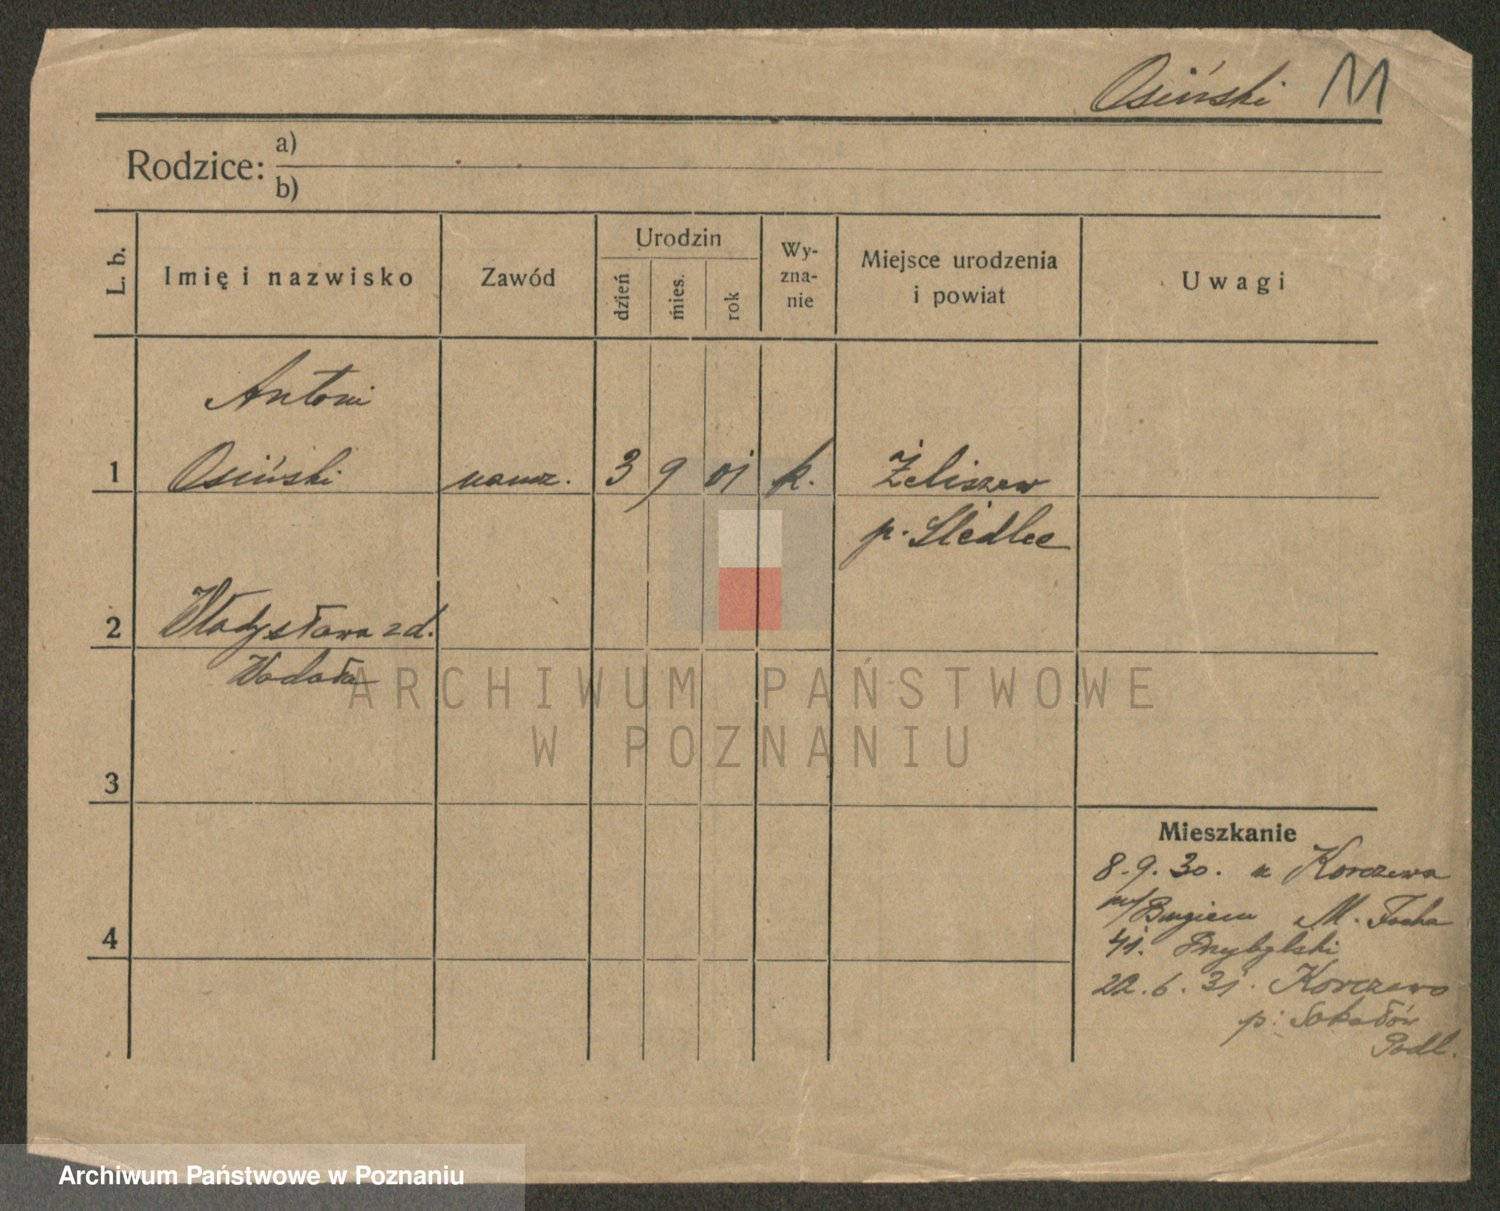 Osiński M
Rodzice: a)
b)
L. b.
Imię i nazwisko
Zawód
Urodzin
dzień
mies.
rok
Wy-
zna-
nie
Miejsce urodzenia
i powiat
Uwagi
Antoni
1 Osiński naucz. 3 9 01 k. Żeliszew
p. Siedlce
2 Władysława z d.
Wadoła
3
4
Mieszkanie
8.9.30. z Korczewa
n/Bugiem M. Focha
41. Przybylski
22.6.31. Korczewo
p. Sokołów
Podl.
ARCHIWUM PAŃSTWOWE
W POZNANIU
Archiwum Państwowe w Poznaniu